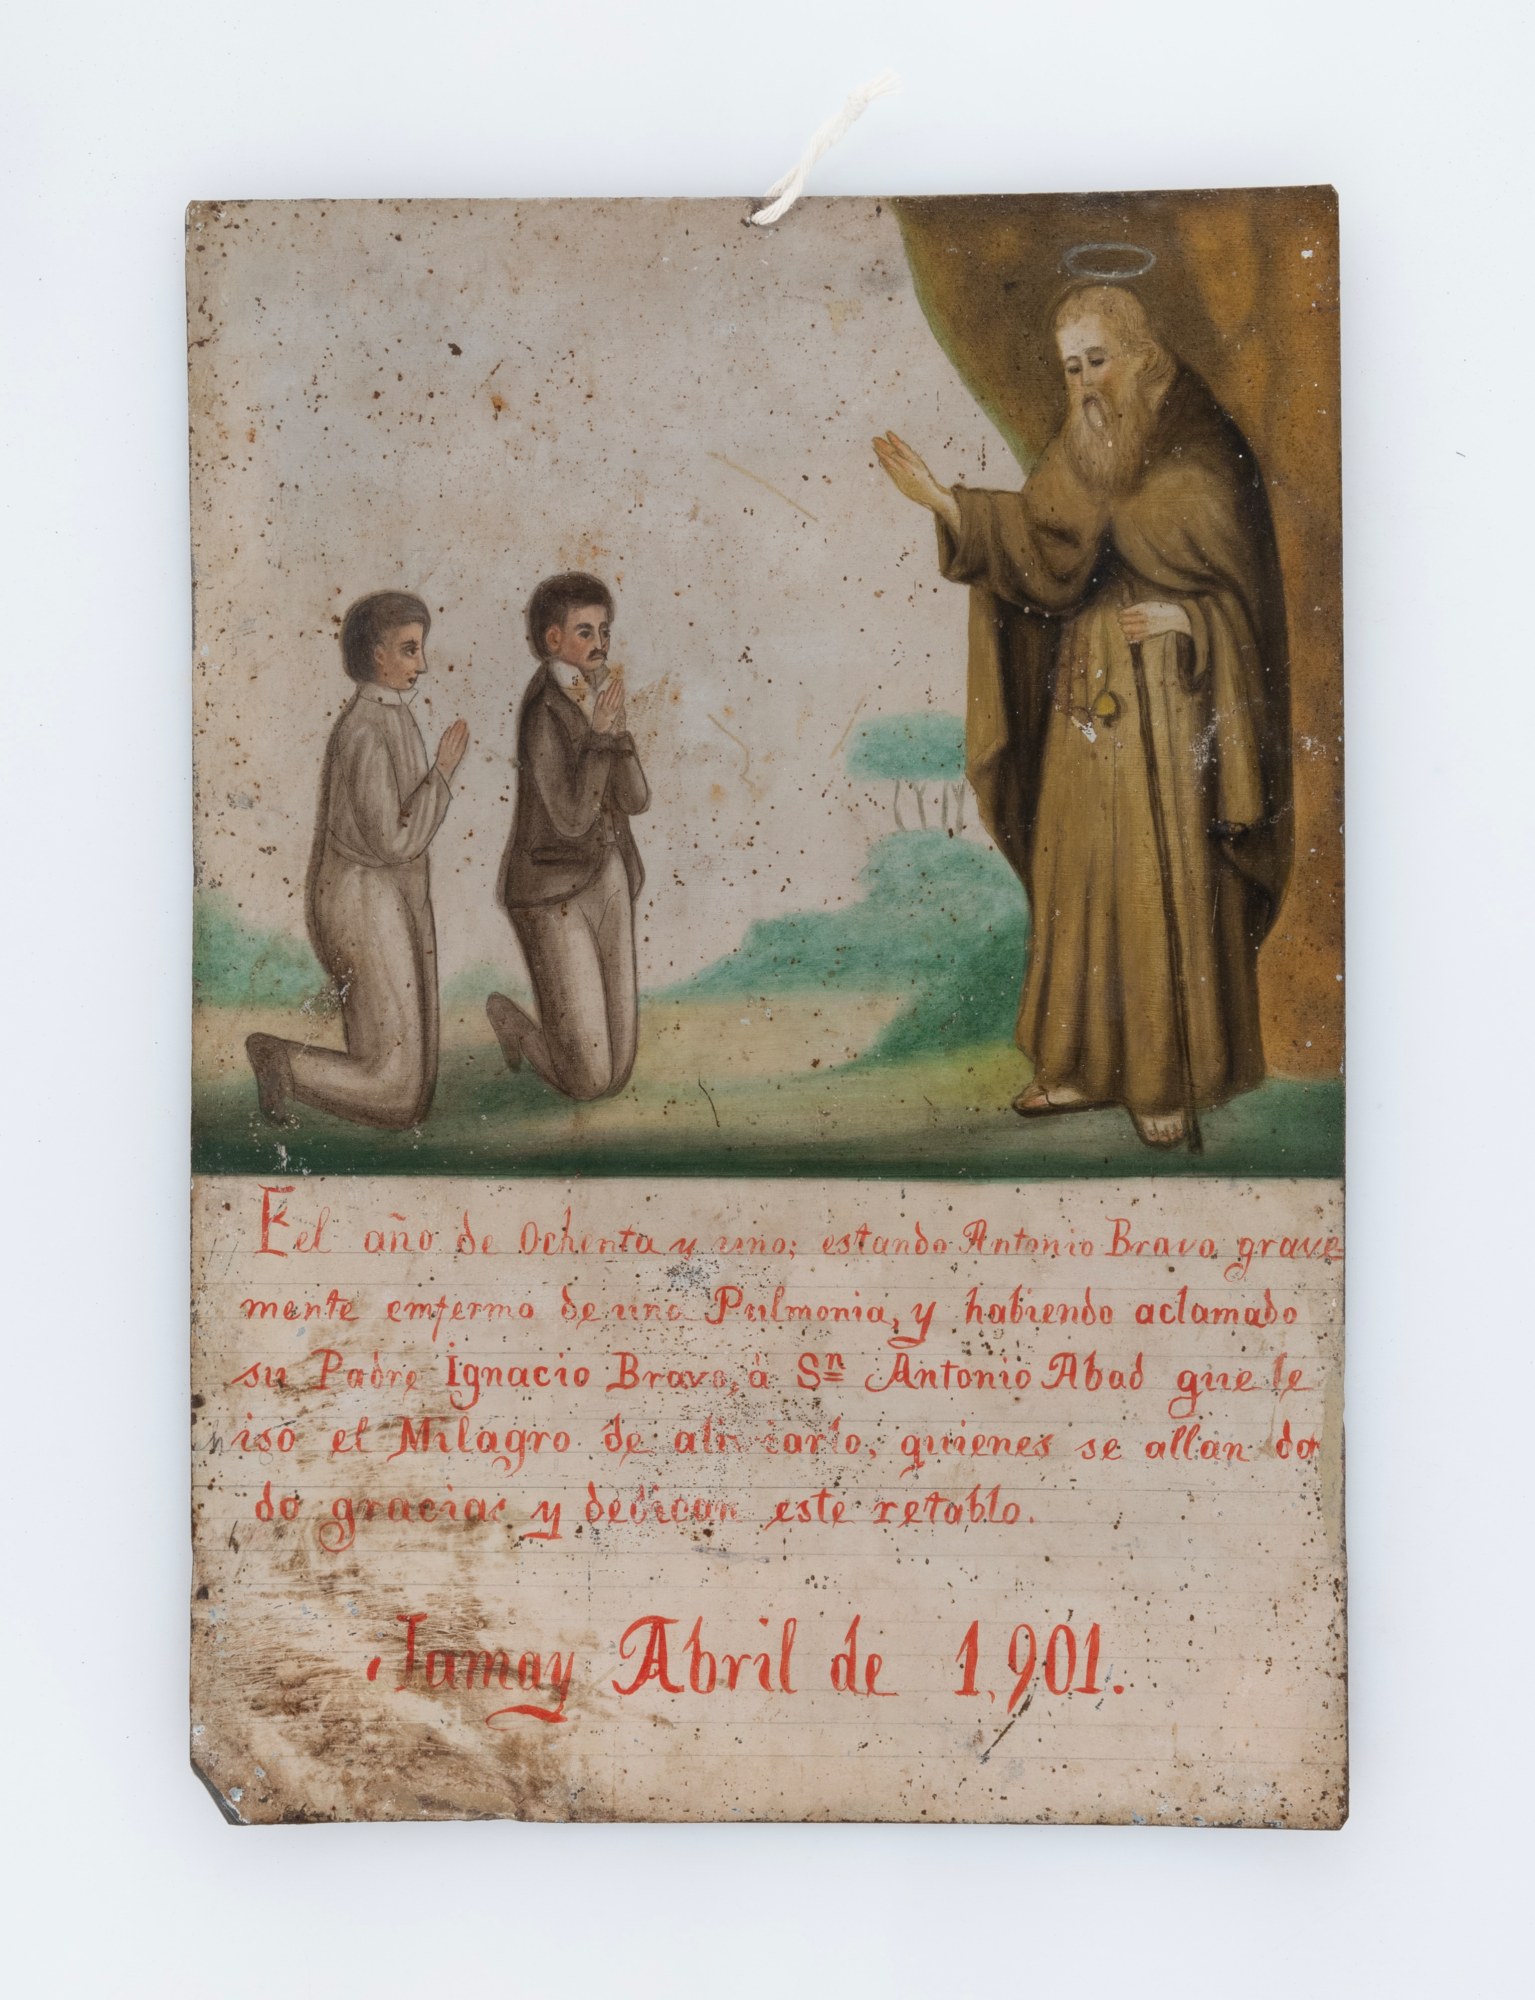 Eel año de Ochenta y uno; estando Antonio Bravo grave
mente emfermo de una Pulmonia, y habiendo aclamado
su Padre Ignacio Bravo, á Sn Antonio Abad que le
iso el Milagro de aliviarlo, quienes se allan dan
do gracias y dedican este retablo.
Jamay Abril de 1,901.